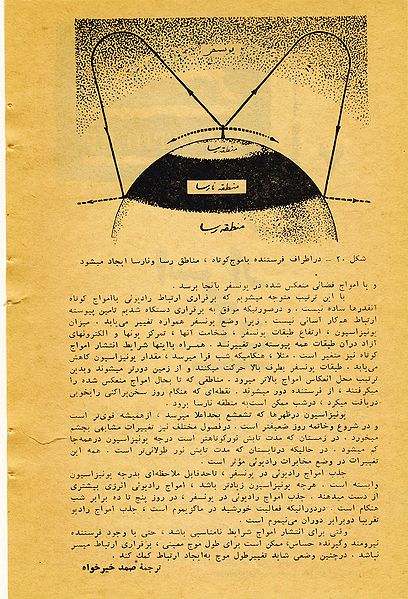 یونسفر
منطقه رسا
منطقه نارسا
منطقه رسا
شکل ۲۰ ـ دراطراف فرستنده باموج‌کوتاه ، مناطق رسا ونارسا ایجاد میشود
و یا امواج فضائی منعکس شده در یونسفر بآنجا برسد .
با این ترتیب متوجه میشویم که برقراری ارتباط رادیوئی باامواج کوتاه
آنقدرها ساده نیست ، و درصورتیکه موفق به برقراری دستگاه شدیم تامین پیوسته
ارتباط همکار آسانی نیست ، زیرا وضع یونسفر همواره تغییر می‌یابد . میزان
یونیزاسیون ، ارتفاع طبقات یونسفر ، ضخامت آنها ، تمرکز یونها و الکترونهای
آزاد درآن طبقات همه پیوسته در تغییرند . همراه بااینها شرایط انتشار امواج
کوتاه نیز متغیر است . مثلا ، هنگامیکه شب فرا میرسد ، مقدار یونیزاسیون کاهش
می‌یابد . طبقات یونسفر بطرف بالا حرکت میکنند و از زمین دورتر میشوند وبدین
ترتیب محل انعکاس امواج بالاتر میرود . مناطقی که تا بحال امواج منعکس شده را
میگرفتند ، از فرستنده دور میشوند . نقطه‌ای که هنگام روز سخن‌پراکنی رابخوبی
دریافت میکرد ، درشب ممکن است‌به منطقه نارسا برود .
یونیزاسیون درظهرها که تشعشع بحداعلا میرسد ، ازهمیشه قوی‌تر است
و در شروع وخاتمه روز ضعیفتر است . درفصول مختلف نیز تغییرات مشابهی بچشم
میخورد . در زمستان که مدت تابش نورکوتاهتر است درجه یونیزاسیون درهمه‌جا
کم میشود . در حالیکه درتابستان که مدت تابش نور طولانی‌تر است . همه این
تغییرات در وضع مخابرات رادیوئی مؤثر است .
جذب امواج رادیوئی در یونسفر ، تاحدقابل ملاحظه‌ای بدرجه یونیزاسیون
وابسته است . هرچه یونیزاسیون زیادتر باشد ، امواج رادیوئی انرژی بیشتری
از دست میدهند . جذب امواج رادیوئی در یونسفر ، در روز پنج تا ده برابر شب
هنگام است . دردورانیکه فعالیت خورشید در ماکزیموم است ، جذب امواج رادیو
تقریبا دوبرابر دوران می‌نیموم است .
وقتی برای انتشار امواج شرایط نامناسبی باشد ، حتی با وجود فرستنده
نیرومند وگیرنده حساس، ممکن است برای طول موج معینی ، برقراری ارتباط میسر
نباشد . درچنین وضعی شاید تغییرطول موج به‌ایجاد ارتباط کمک کند .
ترجمهٔ صمد خیرخواه